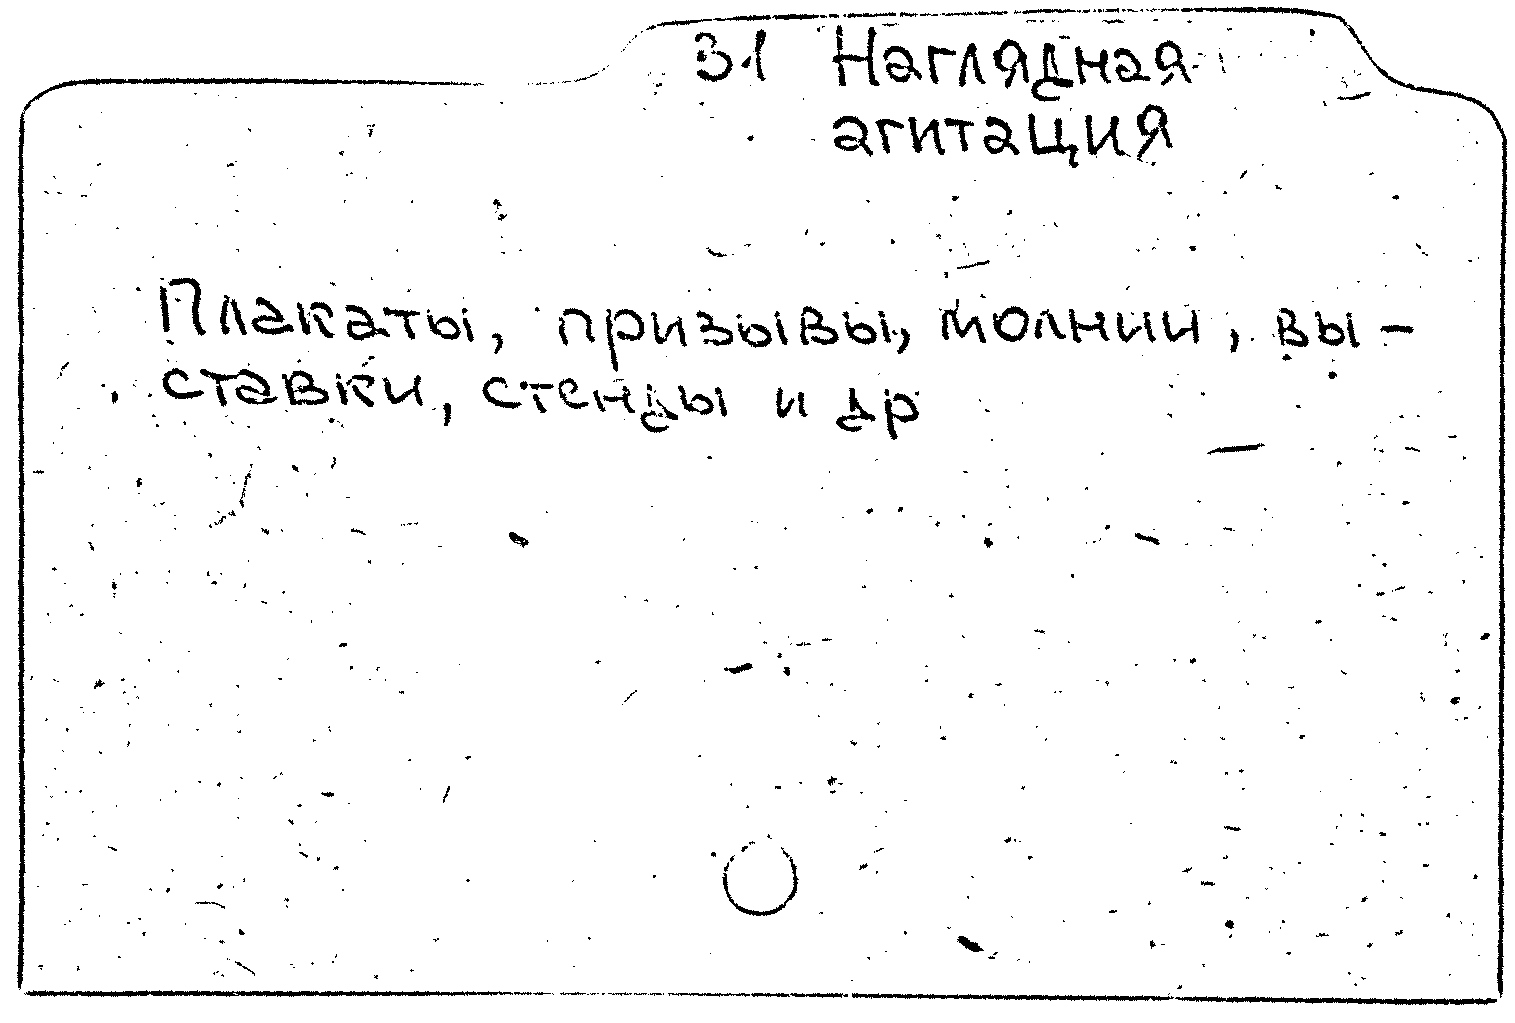 31 Наглядная
агитация
Плакаты, призывы, молнии, вы-
ставки, стенды и др